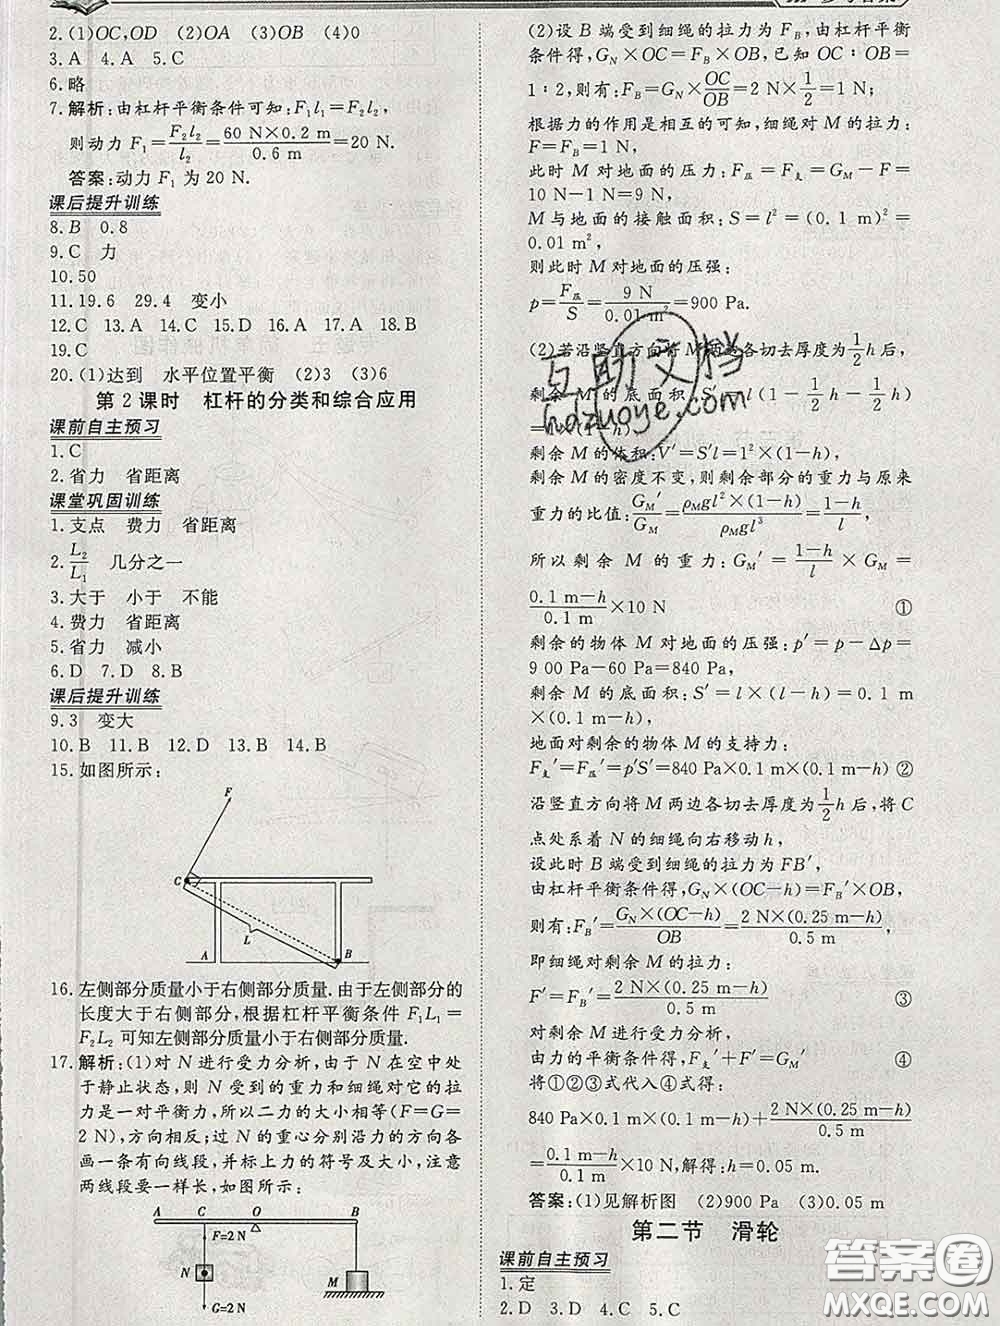 参考答案
2.(1)OC,OD (2)OA (3)OB (4)0
3.A 4.A 5.C
6.略
7.解析:由杠杆平衡条件可知:F₁l₁=F₂l₂,
则动力 F₁=F₂l₂/l₂=60 N×0.2 m/0.6 m=20 N.
答案:动力 F₁ 为 20 N.
课后提升训练
8.B 0.8
9.C 力
10.50
11.19.6 29.4 变小
12.C 13.A 14.C 15.D 16.A 17.A 18.B
19.C
20.(1)达到 水平位置平衡 (2)3 (3)6
第2课时 杠杆的分类和综合应用
课前自主预习
1.C
2.省力 省距离
课堂巩固训练
1.支点 费力 省距离
2.L₂/L₁ 几分之一
3.大于 小于 不能
4.费力 省距离
5.省力 减小
6.D 7.D 8.B
课后提升训练
9.3 变大
10.B 11.B 12.D 13.B 14.B
15.如图所示:
F
C
L
A
B
16.左侧部分质量小于右侧部分质量.由于左侧部分的
长度大于右侧部分,根据杠杆平衡条件 F₁L₁=
F₂L₂ 可知左侧部分质量小于右侧部分质量.
17.解析:(1)对 N 进行受力分析,由于 N 在空中处
于静止状态,则 N 受到的重力和细绳对它的拉
力是一对平衡力,所以二力的大小相等(F=G=
2 N),方向相反;过 N 的重心分别沿力的方向各
画一条有向线段,并标上力的符号及大小,注意
两线段要一样长,如图所示:
A C O B
F=2 N
N
M
G=2 N
(2)设 B 端受到细绳的拉力为 F_B,由杠杆平衡
条件得,G_N×OC=F_B×OB,已知 OC∶OB=
1∶2,则有:F_B=G_N×OC/OB=2 N×1/2=1 N;
根据力的作用是相互的可知,细绳对 M 的拉力:
F=F_B=1 N,
此时 M 对地面的压力:F压=F支=G_M-F=
10 N-1 N=9 N,
M 与地面的接触面积:S=l²=(0.1 m)²=
0.01 m²,
则此时 M 对地面的压强:
p=F压/S=9 N/0.01 m²=900 Pa.
(2)若沿竖直方向将 M 两边各切去厚度为1/2h后,
剩余 M 的底面积:S′=l(l-1/2h-1/2h)
=l×(l-h)
剩余 M 的体积:V′=S′l=l²×(1-h)
剩余 M 的密度不变,则剩余部分的重力与原来
重力的比值:G_M′/G_M=ρ_M gl²×(1-h)/ρ_M gl³=1-h/l,
所以剩余 M 的重力:G_M′=1-h/l×G_M=
0.1 m-h/0.1 m×10 N ①
剩余的物体 M 对地面的压强:p′=p-Δp=
900 Pa-60 Pa=840 Pa,
剩余 M 的底面积:S′=l×(l-h)=0.1 m
×(0.1 m-h),
地面对剩余的物体 M 的支持力:
F支′=F压′=p′S′=840 Pa×0.1 m×(0.1 m-h) ②
沿竖直方向将 M 两边各切去厚度为1/2h后,将 C
点处系着 N 的细绳向右移动 h,
设此时 B 端受到细绳的拉力为 FB′,
由杠杆平衡条件得,G_N×(OC-h)=F_B′×OB,
则有:F_B′=G_N×(OC-h)/OB=2 N×(0.25 m-h)/0.5 m,
即细绳对剩余 M 的拉力:
F′=F_B′=2 N×(0.25 m-h)/0.5 m ③
对剩余 M 进行受力分析,
由力的平衡条件得,F支′+F′=G_M′ ④
将①②③式代入④式得:
840 Pa×0.1 m×(0.1 m-h)+2 N×(0.25 m-h)/0.5 m
=0.1 m-h/0.1 m×10 N,解得:h=0.05 m.
答案:(1)见解析图 (2)900 Pa (3)0.05 m
第二节 滑轮
课前自主预习
1.定
2.D 3.D 4.C 5.C
互助文档
hdzuoye.com
答案圈
MXQE.COM